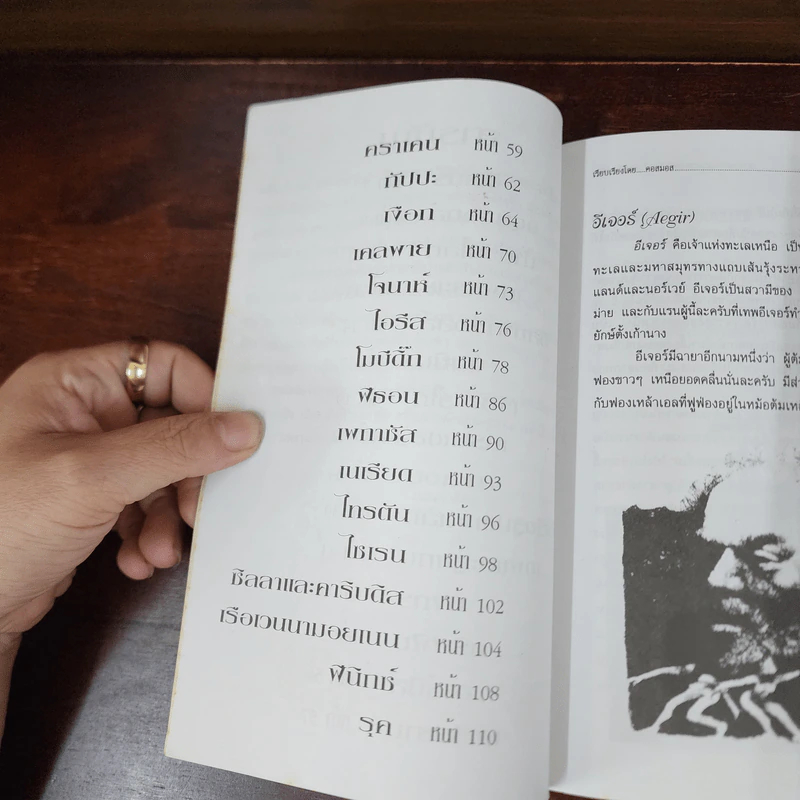 คราเคน หน้า 59
กัปปะ หน้า 62
เงือก หน้า 64
เคลพาย หน้า 70
โจนาห์ หน้า 73
ไอรีส หน้า 76
โมบีดิ๊ก หน้า 78
พีธอน หน้า 86
เพกาซัส หน้า 90
เนเรียด หน้า 93
ไทรตัน หน้า 96
ไซเรน หน้า 98
ซิลลาและคาริบดิส หน้า 102
เรือเวนนามอยเนน หน้า 104
ฟีนิกซ์ หน้า 108
รุค หน้า 110
เรียบเรียงโดย....คอสมอส
อีเจอร์ (Aegir)
อีเจอร์ คือเจ้าแห่งทะเลเหนือ
ทะเลและมหาสมุทรทางแถบเส้นรุ้งระหว่า
แลนด์และนอร์เวย์ อีเจอร์เป็นสวามีของ
ม่าย และกับแรนผู้นี้ละครับที่เทพอีเจอร์
ยักษ์ตั้งเก้านาง
อีเจอร์มีฉายาอีกนามหนึ่งว่า
ฟองขาวๆ เหนือยอดคลื่นนั่นละครับ
กับฟองเหล้าเอลที่ฟูฟ่องอยู่ในหม้อต้มเหล้